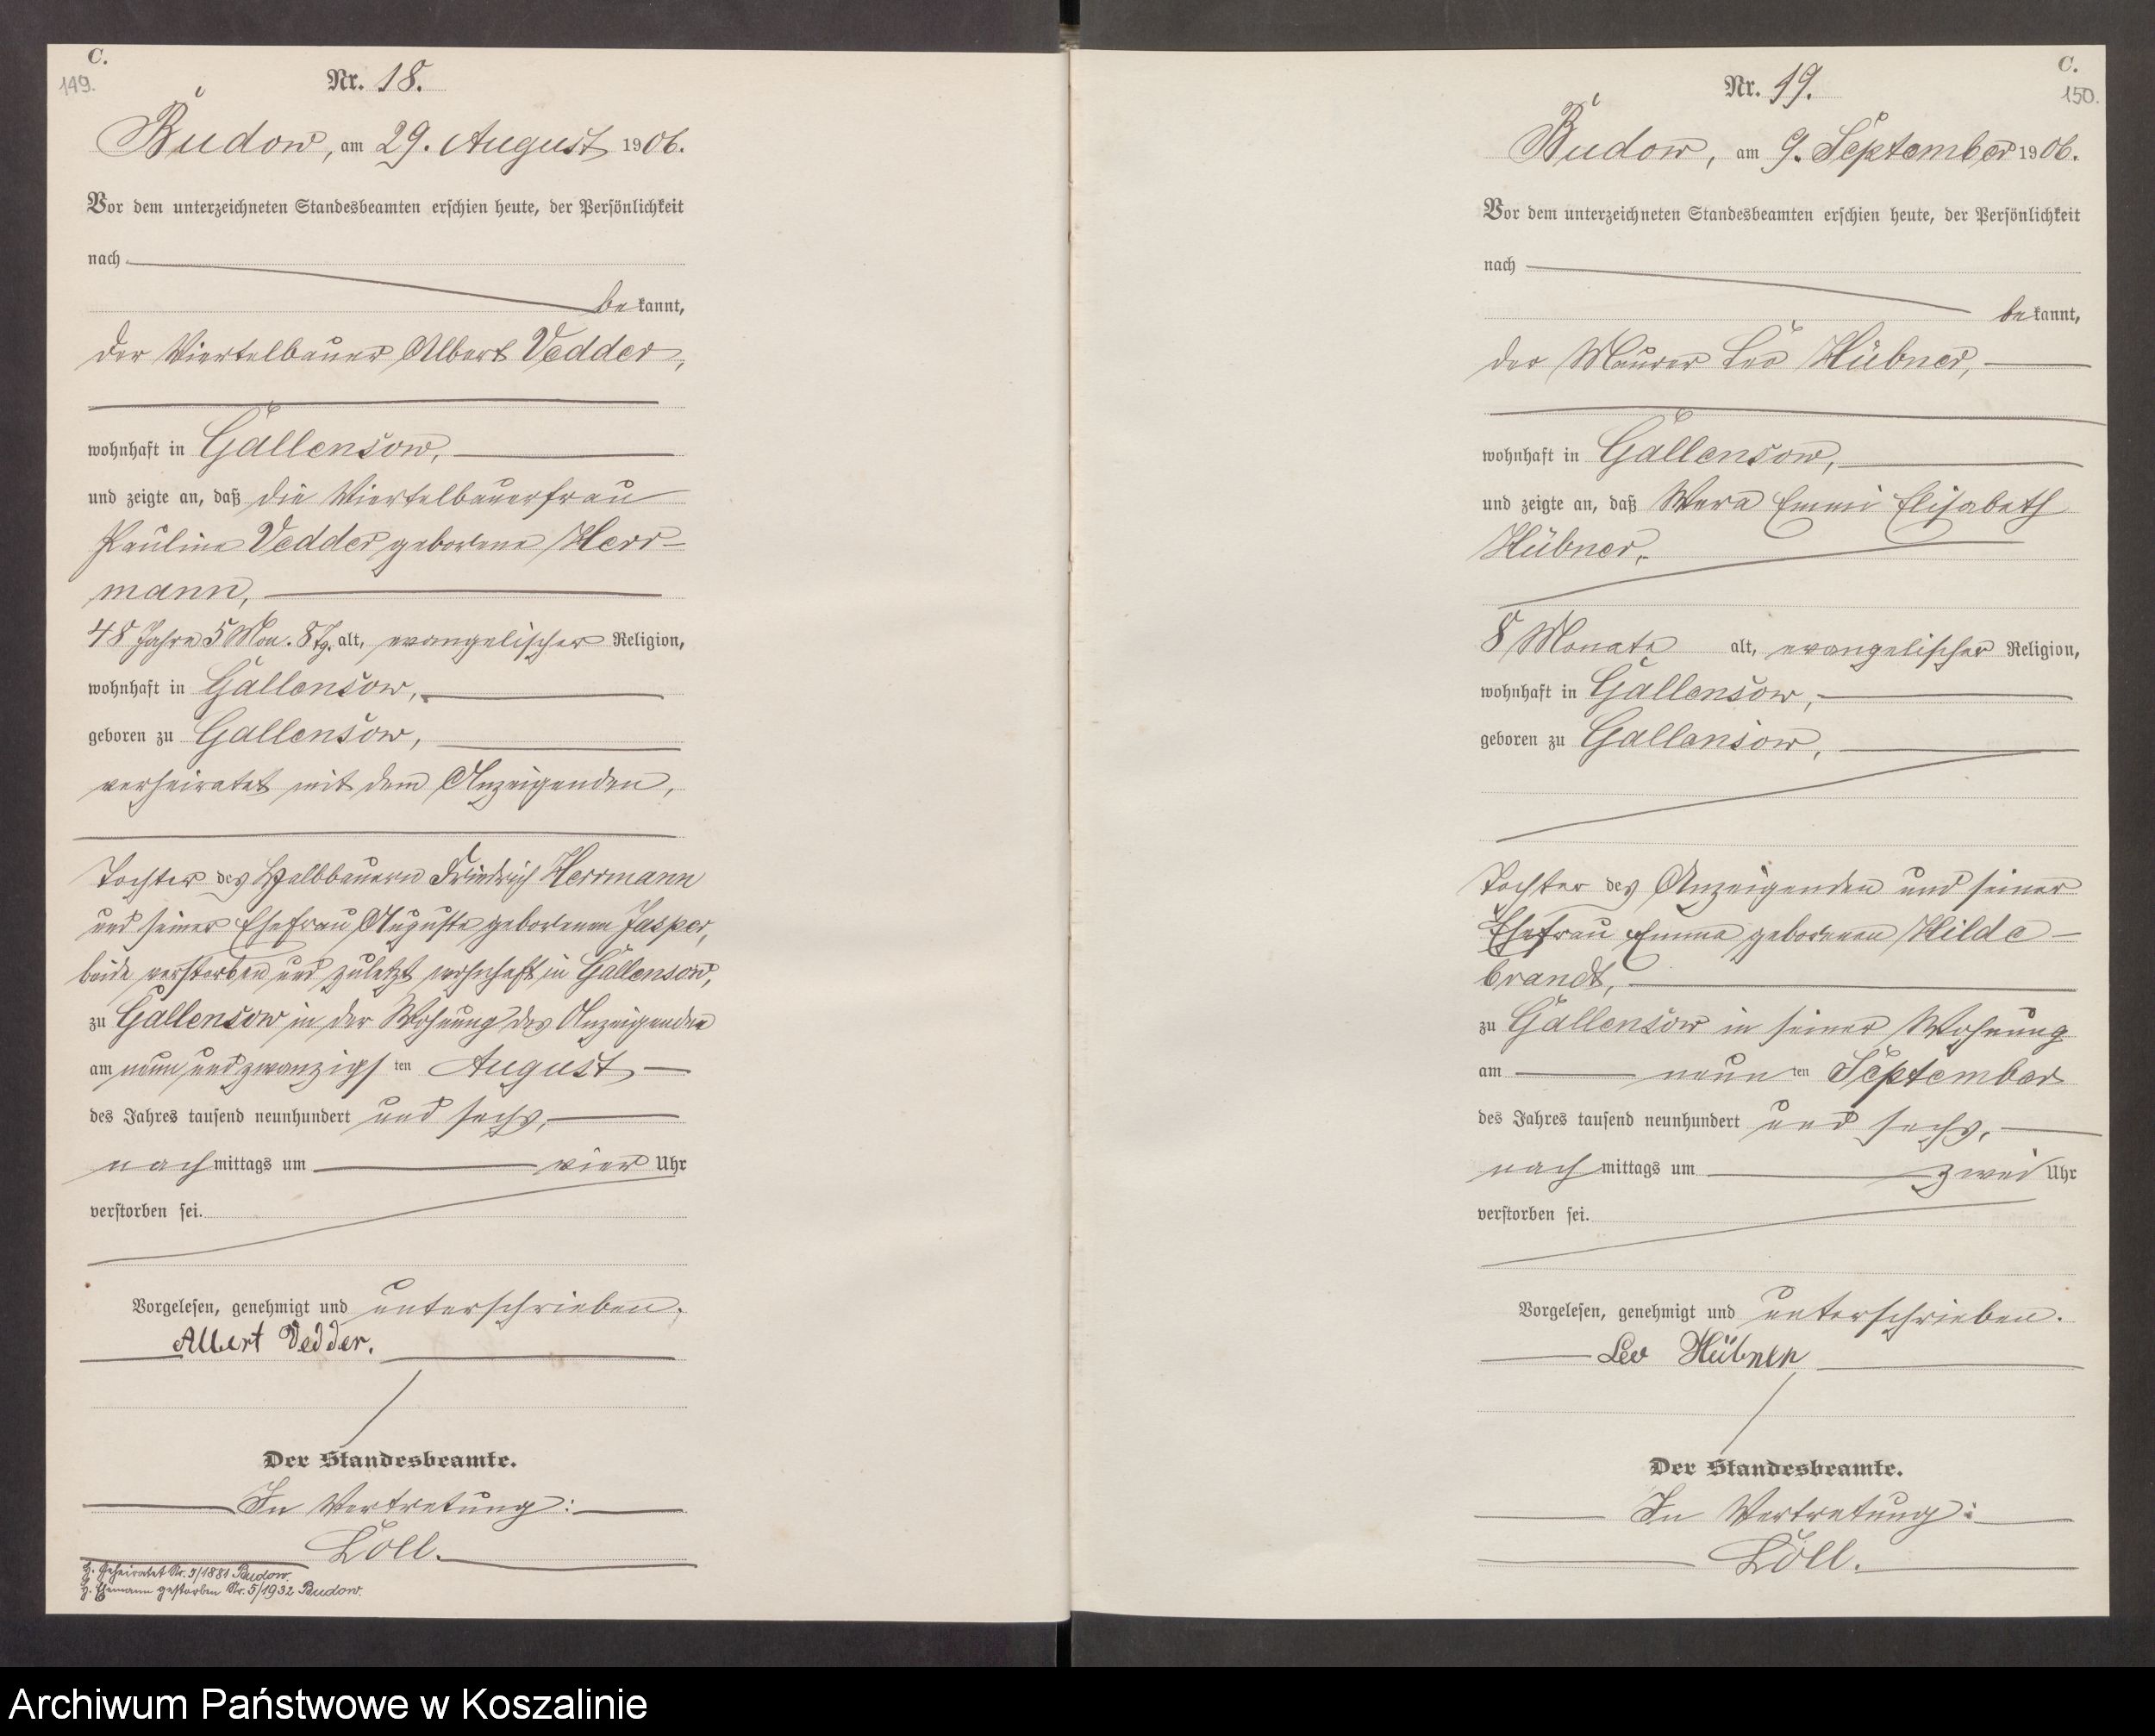 C.
149.
Nr. 18.
Budow, am 29. August 1906.
Vor dem unterzeichneten Standesbeamten erschien heute, der Persönlichkeit
nach
bekannt,
der Viertelbauer Albert Vedder,
wohnhaft in Gallensow,
und zeigte an, daß die Viertelbauerfrau
Pauline Vedder geborene Herr-
mann,
48 Jahre 5 Mon. 8 Tg. alt, evangelischer Religion,
wohnhaft in Gallensow,
geboren zu Gallensow,
verheiratet mit dem Anzeigenden,
Tochter des Halbbauern Friedrich Herrmann
und seiner Ehefrau Auguste geborenen Jasper,
beide verstorben und zuletzt wohnhaft in Gallensow,
zu Gallensow in der Wohnung des Anzeigenden
am neun und zwanzigsten August
des Jahres tausend neunhundert und sechs,
nachmittags um vier Uhr
verstorben sei.
Vorgelesen, genehmigt und unterschrieben.
Albert Vedder.
Der Standesbeamte.
In Vertretung:
Löll.
H. geheiratet Nr. 5/1881 Budow.
H. Ehemann gestorben Nr. 5/1932 Budow.
C.
150.
Nr. 19.
Budow, am 9. September 1906.
Vor dem unterzeichneten Standesbeamten erschien heute, der Persönlichkeit
nach
bekannt,
der Maurer Leo Hübner,
wohnhaft in Gallensow,
und zeigte an, daß Wera Emmi Elisabeth
Hübner,
8 Monate alt, evangelischer Religion,
wohnhaft in Gallensow,
geboren zu Gallensow,
Tochter des Anzeigenden und seiner
Ehefrau Emma geborenen Hilde-
brandt,
zu Gallensow in seiner Wohnung
am neunten September
des Jahres tausend neunhundert und sechs,
nachmittags um zwei Uhr
verstorben sei.
Vorgelesen, genehmigt und unterschrieben.
Leo Hübner
Der Standesbeamte.
In Vertretung:
Löll.
Archiwum Państwowe w Koszalinie